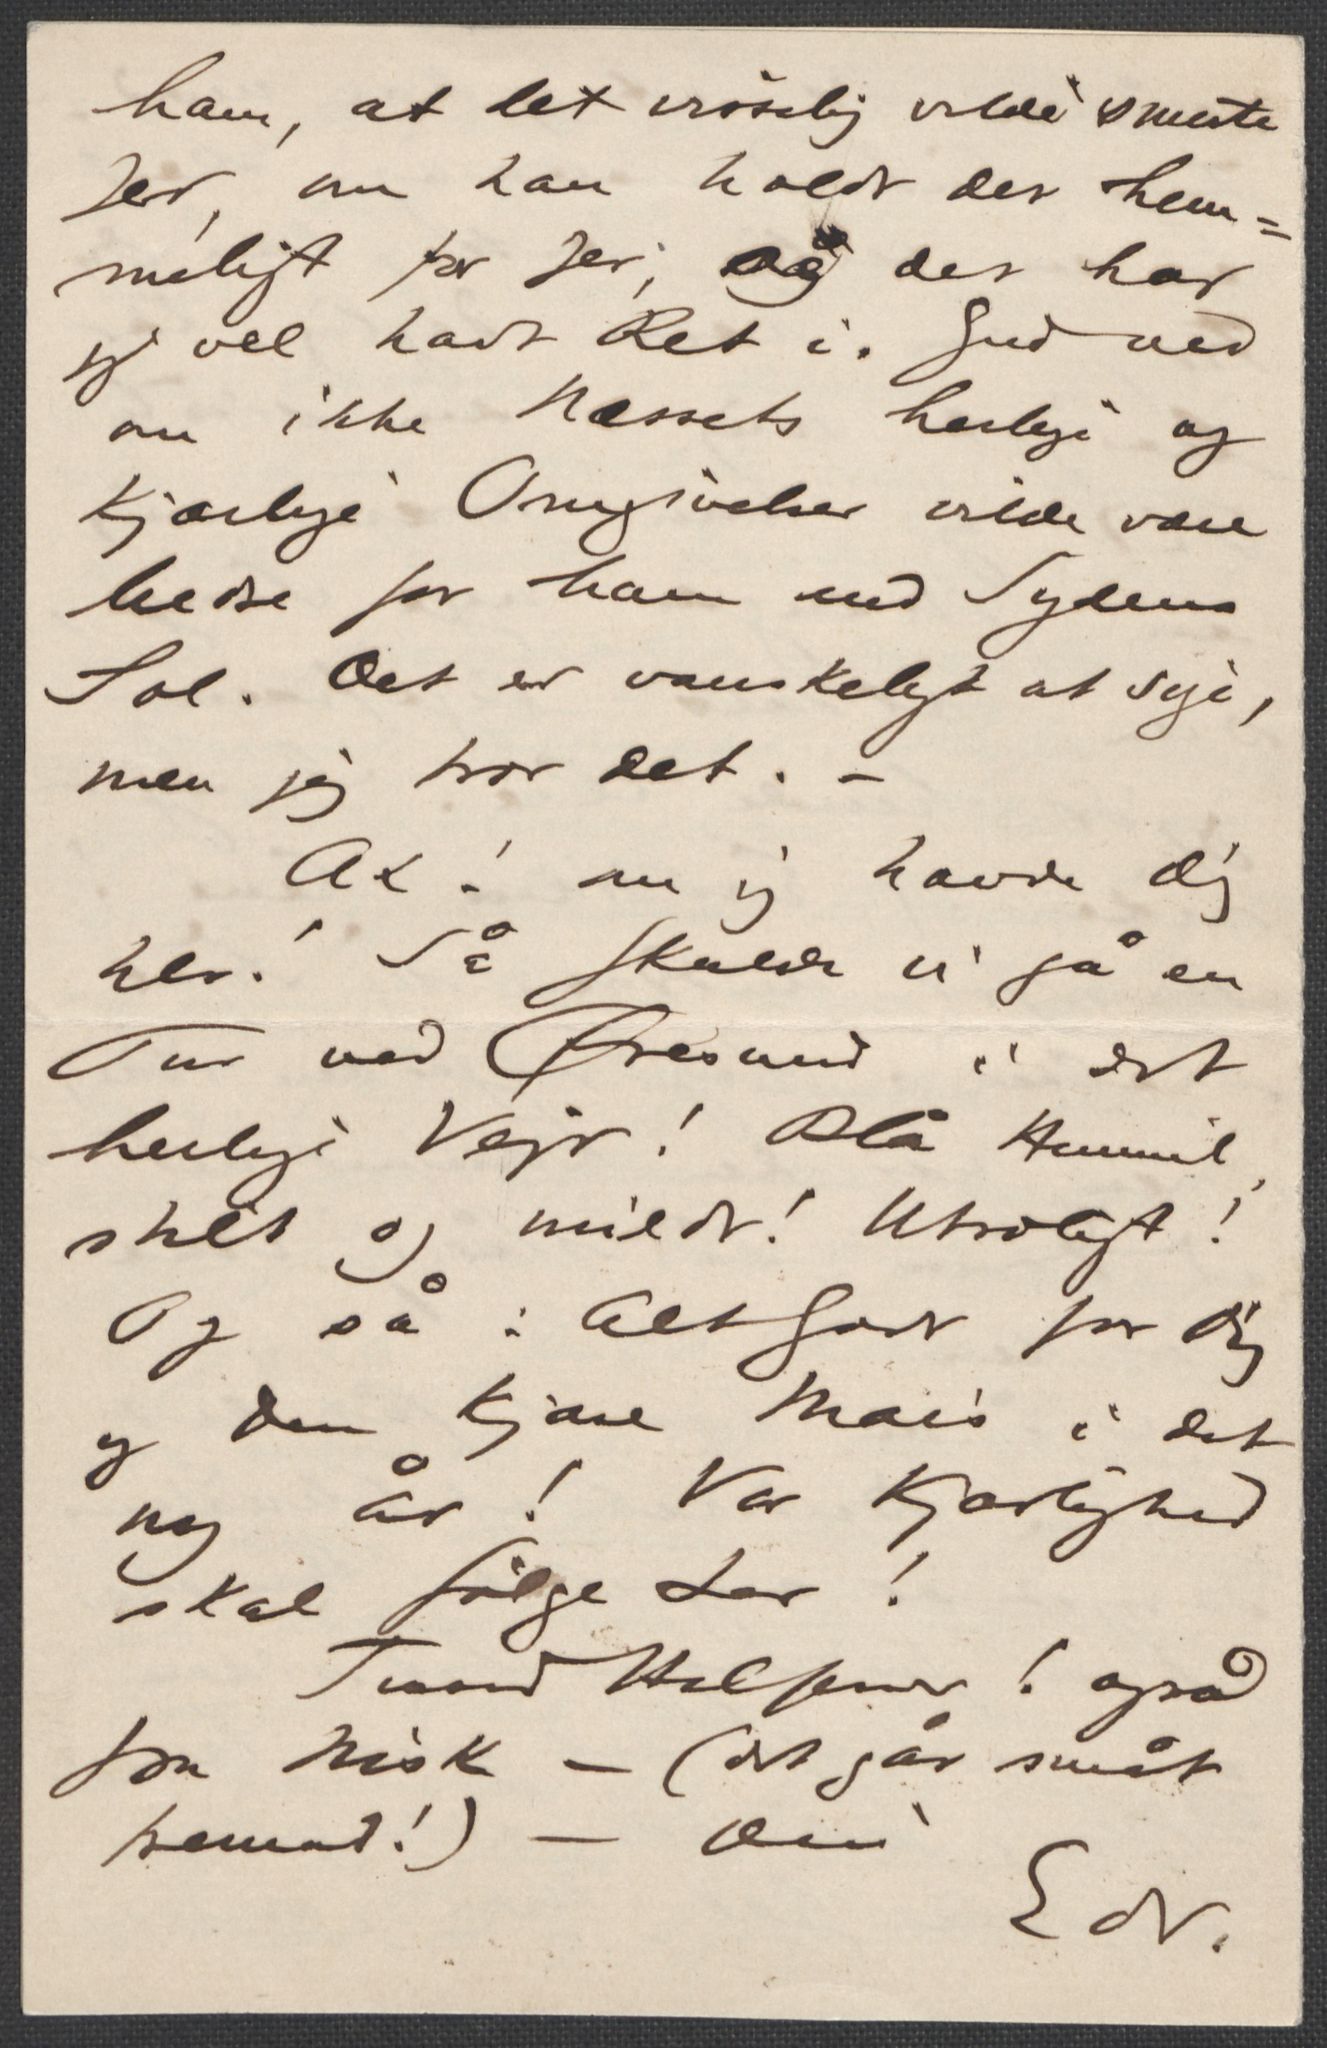 ham, at det virkelig vilde smerte
Jer, om han holdt det hem=
meligt for Jer, og det har
jeg vel havt Ret i. Gud ved
om ikke Næssets herlige og
kjærlige Omgivelser vilde være
bedre for ham end Sydens
Sol. Det er vanskeligt at sige,
men jeg tror det. –
Ak! om jeg havde Dig
her! Så skulde vi gå en
Tur ved Øresund i det
herlige Vejr! Blå Himmel,
stille og mildt! Utroligt!
Og så: Alt Godt for Dig
og den kjære Marie i det
ny år! Vor Kjærlighed
skal følge Jer!
Tusend Hilsener! også
fra Nisk – (det går småt
fremad!) – Din
Edv.